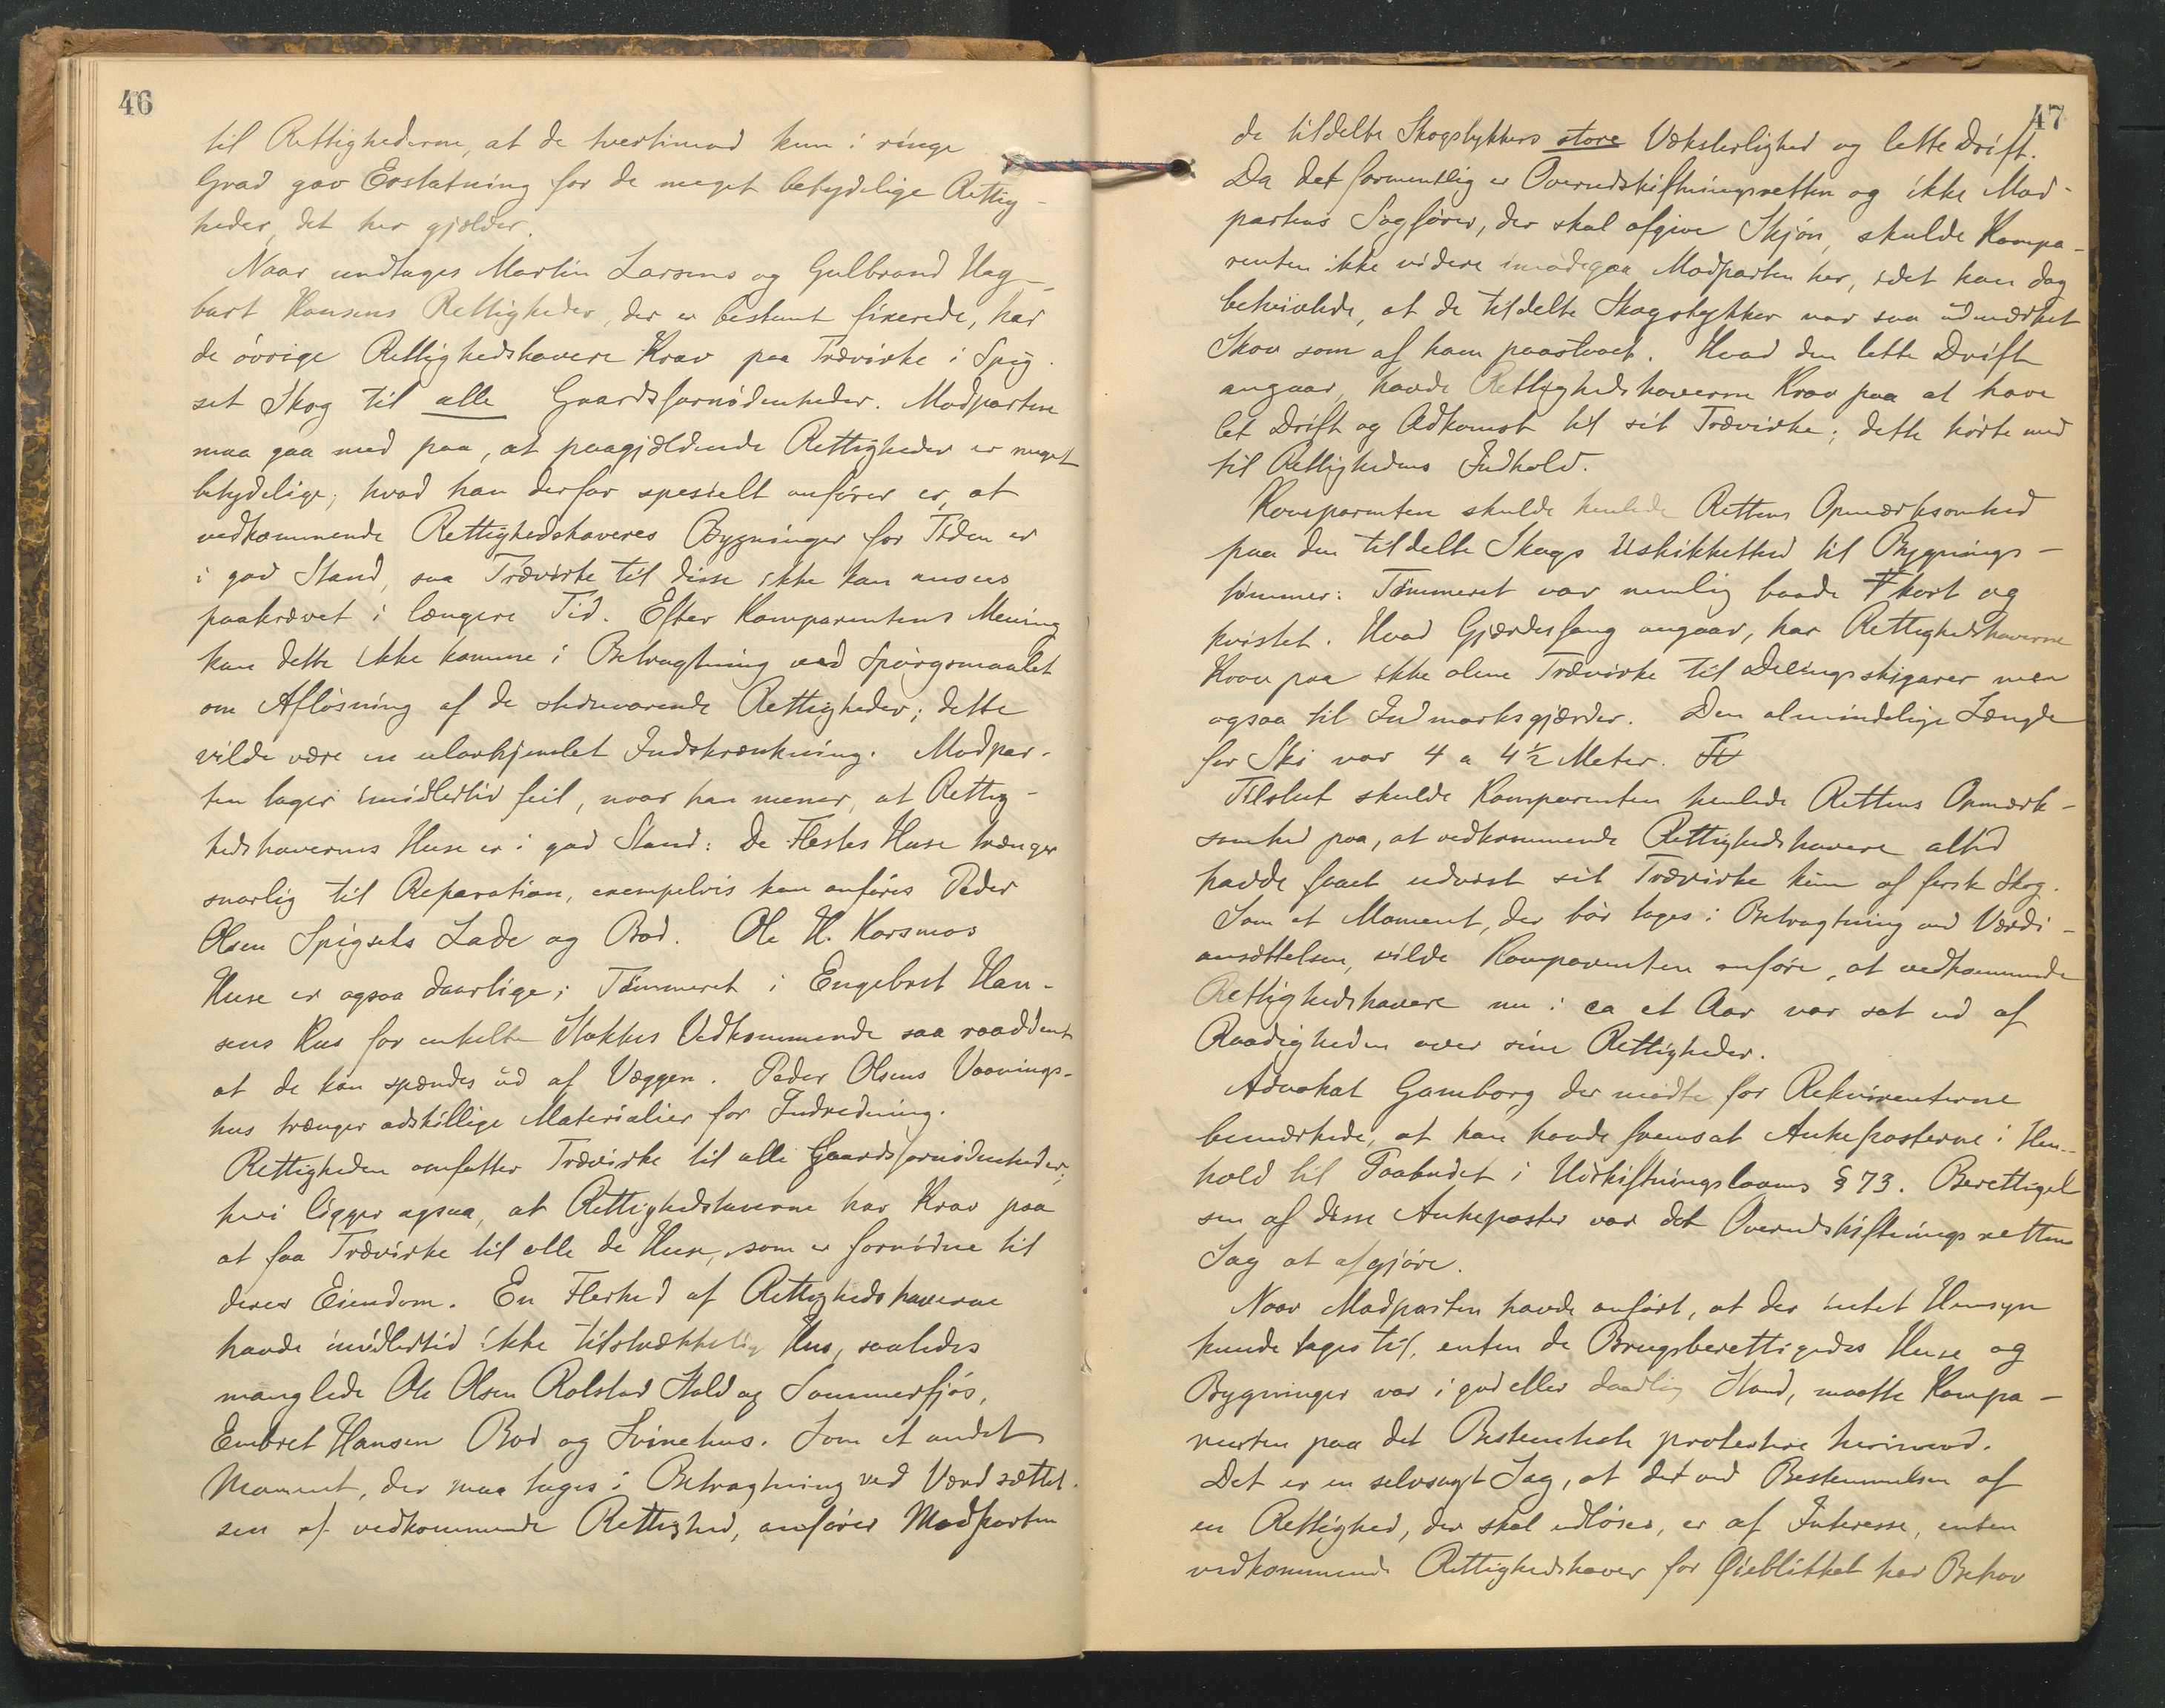 46
til Rettighederne, at de tvertimod kun i ringe
Grad gav Erstatning for de meget betydelige Rettig-
heder, det her gjælder.
Naar undtages Martin Larsens og Gulbrand Hag-
bart Hansens Rettigheder, der er bestemt fixerede, har
de øvrige Rettighedshavere Krav paa Trævirke i Spig-
set Skog til alle Gaardsfornødenheder. Modparten
maa gaa med paa, at paagjældende Rettigheder er meget
betydelige; hvad han derfor spesielt anfører er, at
vedkommende Rettighedshaveres Bygninger for Tiden er
i god Stand, saa Trævirke til disse ikke kan ansees
paakrævet i længere Tid. Efter Komparentens Mening
kan dette ikke komme i Betragtning ved Spørgsmaalet
om Afløsning af de stedsevarende Rettigheder; dette
vilde være en ulovhjemlet Indskrænkning. Modpar-
ten tager imidlertid feil, naar han mener, at Rettig-
hedshavernes Huse er i god Stand: De Flestes Huse trænger
snarlig til Reparation, exempelvis kan anføres Peder
Olsen Spigsets Lade og Bod. Ole H. Korsmos
Huse er ogsaa daarlige; Tømmeret i Engebret Han-
sens Hus for enkelte Stokkes Vedkommende saa raaddent
at de kan spændes ud af Væggen. Peder Olsens Vaanings-
hus trænger adskillige Materialier for Indredning.
Rettigheden omfatter Trævirke til alle Gaardsfornødenheder;
heri ligger ogsaa, at Rettighedshaverne har Krav paa
at faa Trævirke til alle de Huse, som er fornødne til
deres Eiendom. En Flerhed af Rettighedshaverne
havde imidlertid ikke tilstrækkelig Hus, saaledes
manglede Ole Olsen Rolstad Stald og Sommerfjøs,
Embret Hansen Bod og Svinehus. Som et andet
Moment, der maa tages i Betragtning ved Værdsættel-
sen af vedkommende Rettighed, anfører Modparten
47
de tildelte Skogstykkers store Veksterlighed og lette Drift.
Da det formentlig er Overudskiftningsretten og ikke Mod-
partens Sagfører, der skal afgive Skjøn, skulde Kompa-
renten ikke videre imødegaa Modparten her, idet han dog
betvivlede, at de tildelte Skogstykker var saa udmærket
Skov som af ham paastaaet. Hvad den lette Drift
angaar, havde Rettighedshaverne Krav paa at have
let Drift og Adkomst til sit Trævirke; dette hørte med
til Rettighedens Indhold.
Komparenten skulde henlede Rettens Opmærksomhed
paa den tildelte Skogs Uskikkethed til Bygnings-
tømmer: Tømmeret var nemlig baade kort og
kvistet. Hvad Gjærdesfang angaar, har Rettighedshaverne
Krav paa ikke alene Trævirke til Delingsskigarer men
ogsaa til Indmarksgjærder. Den almindelige Længde
for Ski var 4 a 4½ Meter.
Tilslut skulde Komparenten henlede Rettens Opmærk-
somhed paa, at vedkommende Rettighedshavere altid
havde faaet udvist sit Trævirke kun af fersk Skog.
Som et Moment, der bør tages i Betragtning ved Værdi-
ansættelsen, vilde Komparenten anføre, at vedkommende
Rettighedshavere nu i ca et Aar var sat ud af
Raadigheden over sine Rettigheder.
Advokat Gamborg der mødte for Rekvirenterne
bemærkede, at han havde fremsat Ankeposterne i Hen-
hold til Paabudet i Udskiftningslovens § 73. Berettigel
sen af disse Ankeposter var det Overudskiftningsrettens
Sag at afgjøre.
Naar Modparten havde anført, at der intet Hensyn
kunde tages til, enten de Brugsberettigedes Huse og
Bygninger var i god eller daarlig Stand, maatte Kompa-
renten paa det Bestemteste protestere herimod.
Det er en selvsagt Sag, at det ved Bestemmelsen af
en Rettighed, der skal udløses, er af Interesse, enten
vedkommende Rettighedshaver for Øieblikket har Behov